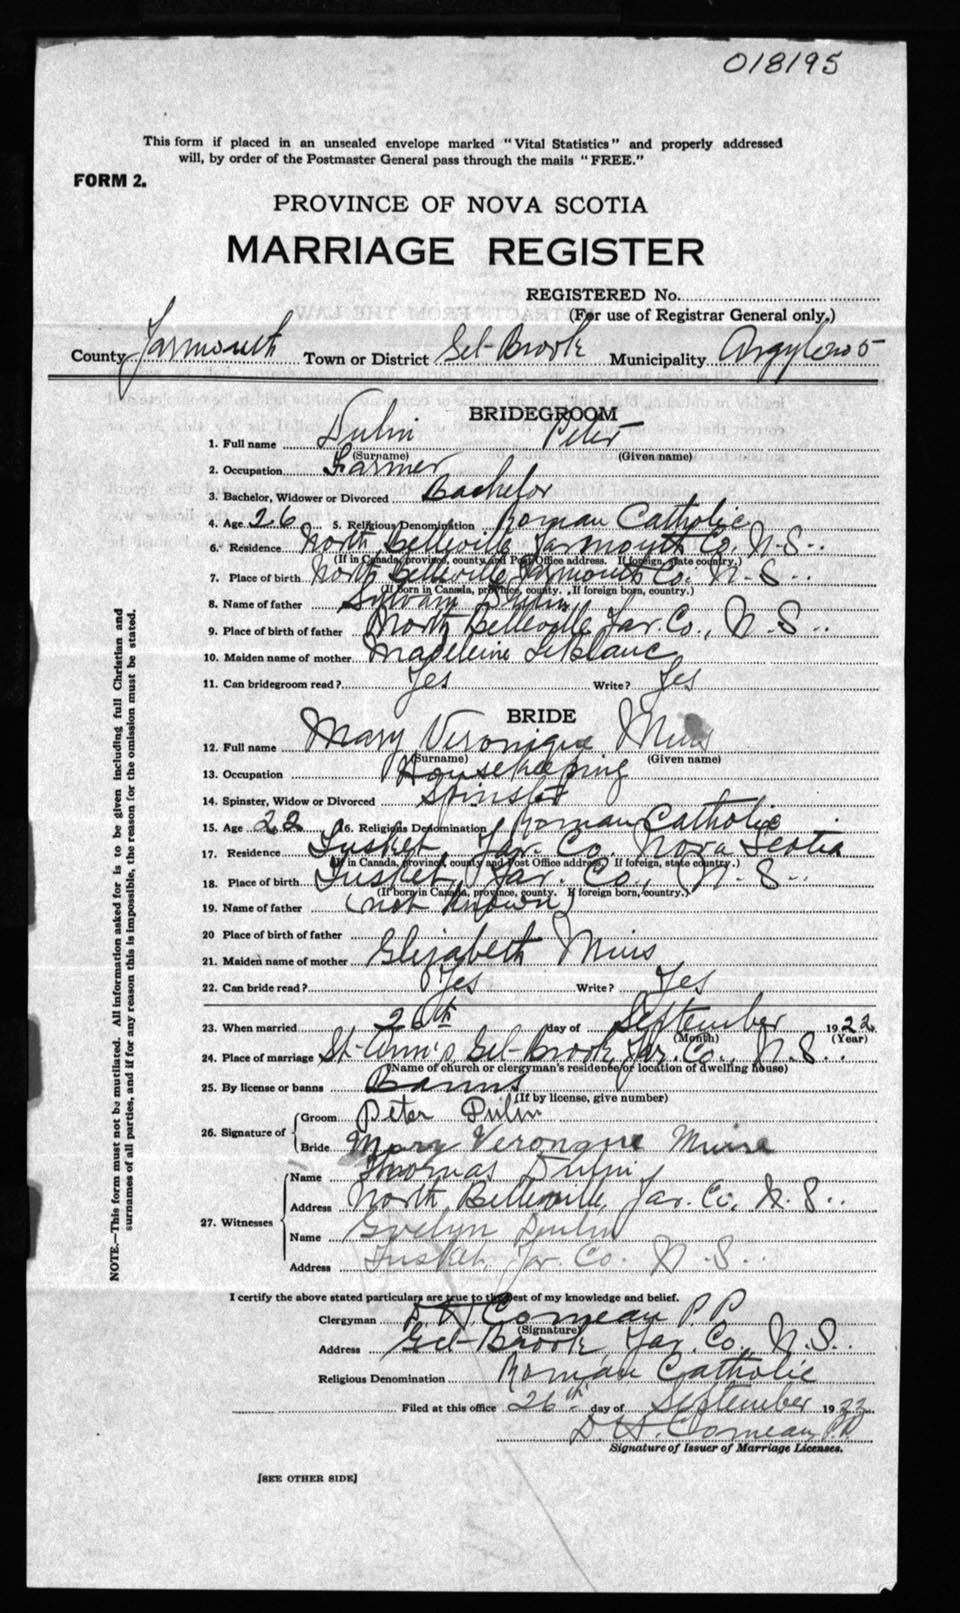 018195
This form if placed in an unsealed envelope marked "Vital Statistics" and properly addressed
will, by order of the Postmaster General pass through the mails "FREE."
FORM 2.
PROVINCE OF NOVA SCOTIA
MARRIAGE REGISTER
REGISTERED No.
(For use of Registrar General only.)
County Yarmouth Town or District Eel-Brook Municipality Argyle
BRIDEGROOM
1. Full name Dulin Peter
(Surname) (Given name)
2. Occupation Farmer
3. Bachelor, Widower or Divorced Bachelor
4. Age 26 5. Religious Denomination Roman Catholic
6. Residence North Belleville Yarmouth Co. N.S..
(If in Canada, province, county and Post Office address. If foreign, state country.)
7. Place of birth North Belleville Yarmouth Co. N.S..
(If born in Canada, province, county. If foreign born, country.)
8. Name of father Sylvain Dulin
9. Place of birth of father North Belleville Yar. Co., N.S..
10. Maiden name of mother Madeleine LeBlanc
11. Can bridegroom read? Yes Write? Yes
BRIDE
12. Full name Mary Veronique Mius
(Surname) (Given name)
13. Occupation Housekeeping
14. Spinster, Widow or Divorced Spinster
15. Age 22 16. Religious Denomination Roman Catholic
17. Residence Tusket, Yar. Co. Nova Scotia
(If in Canada, province, county and Post Office address. If foreign, state country.)
18. Place of birth Tusket, Yar. Co., N.S..
(If born in Canada, province, county. If foreign born, country.)
19. Name of father (not known)
20 Place of birth of father
21. Maiden name of mother Elizabeth Mius
22. Can bride read? Yes Write? Yes
23. When married 26th day of September 1922
(Month) (Year)
24. Place of marriage St-Ann's Eel-Brook, Yar. Co., N.S..
(Name of church or clergyman's residence or location of dwelling house)
25. By license or banns Banns
(If by license, give number)
26. Signature of Groom Peter Dulin
Bride Mary Veronique Muise
27. Witnesses Name Thomas Dulin
Address North Belleville, Yar. Co, N.S..
Name Evelyn Dulin
Address Tusket, Yar. Co. N.S..
I certify the above stated particulars are true to the best of my knowledge and belief.
Clergyman D H Comeau P P
(Signature)
Address Eel-Brook, Yar. Co., N.S..
Religious Denomination Roman Catholic
Filed at this office 26th day of September 1922
D. H. Comeau, P.P.
Signature of Issuer of Marriage Licenses.
[SEE OTHER SIDE]
NOTE.—This form must not be mutilated. All information asked for is to be given including full Christian and
surnames of all parties, and if for any reason this is impossible, the reason for the omission must be stated.